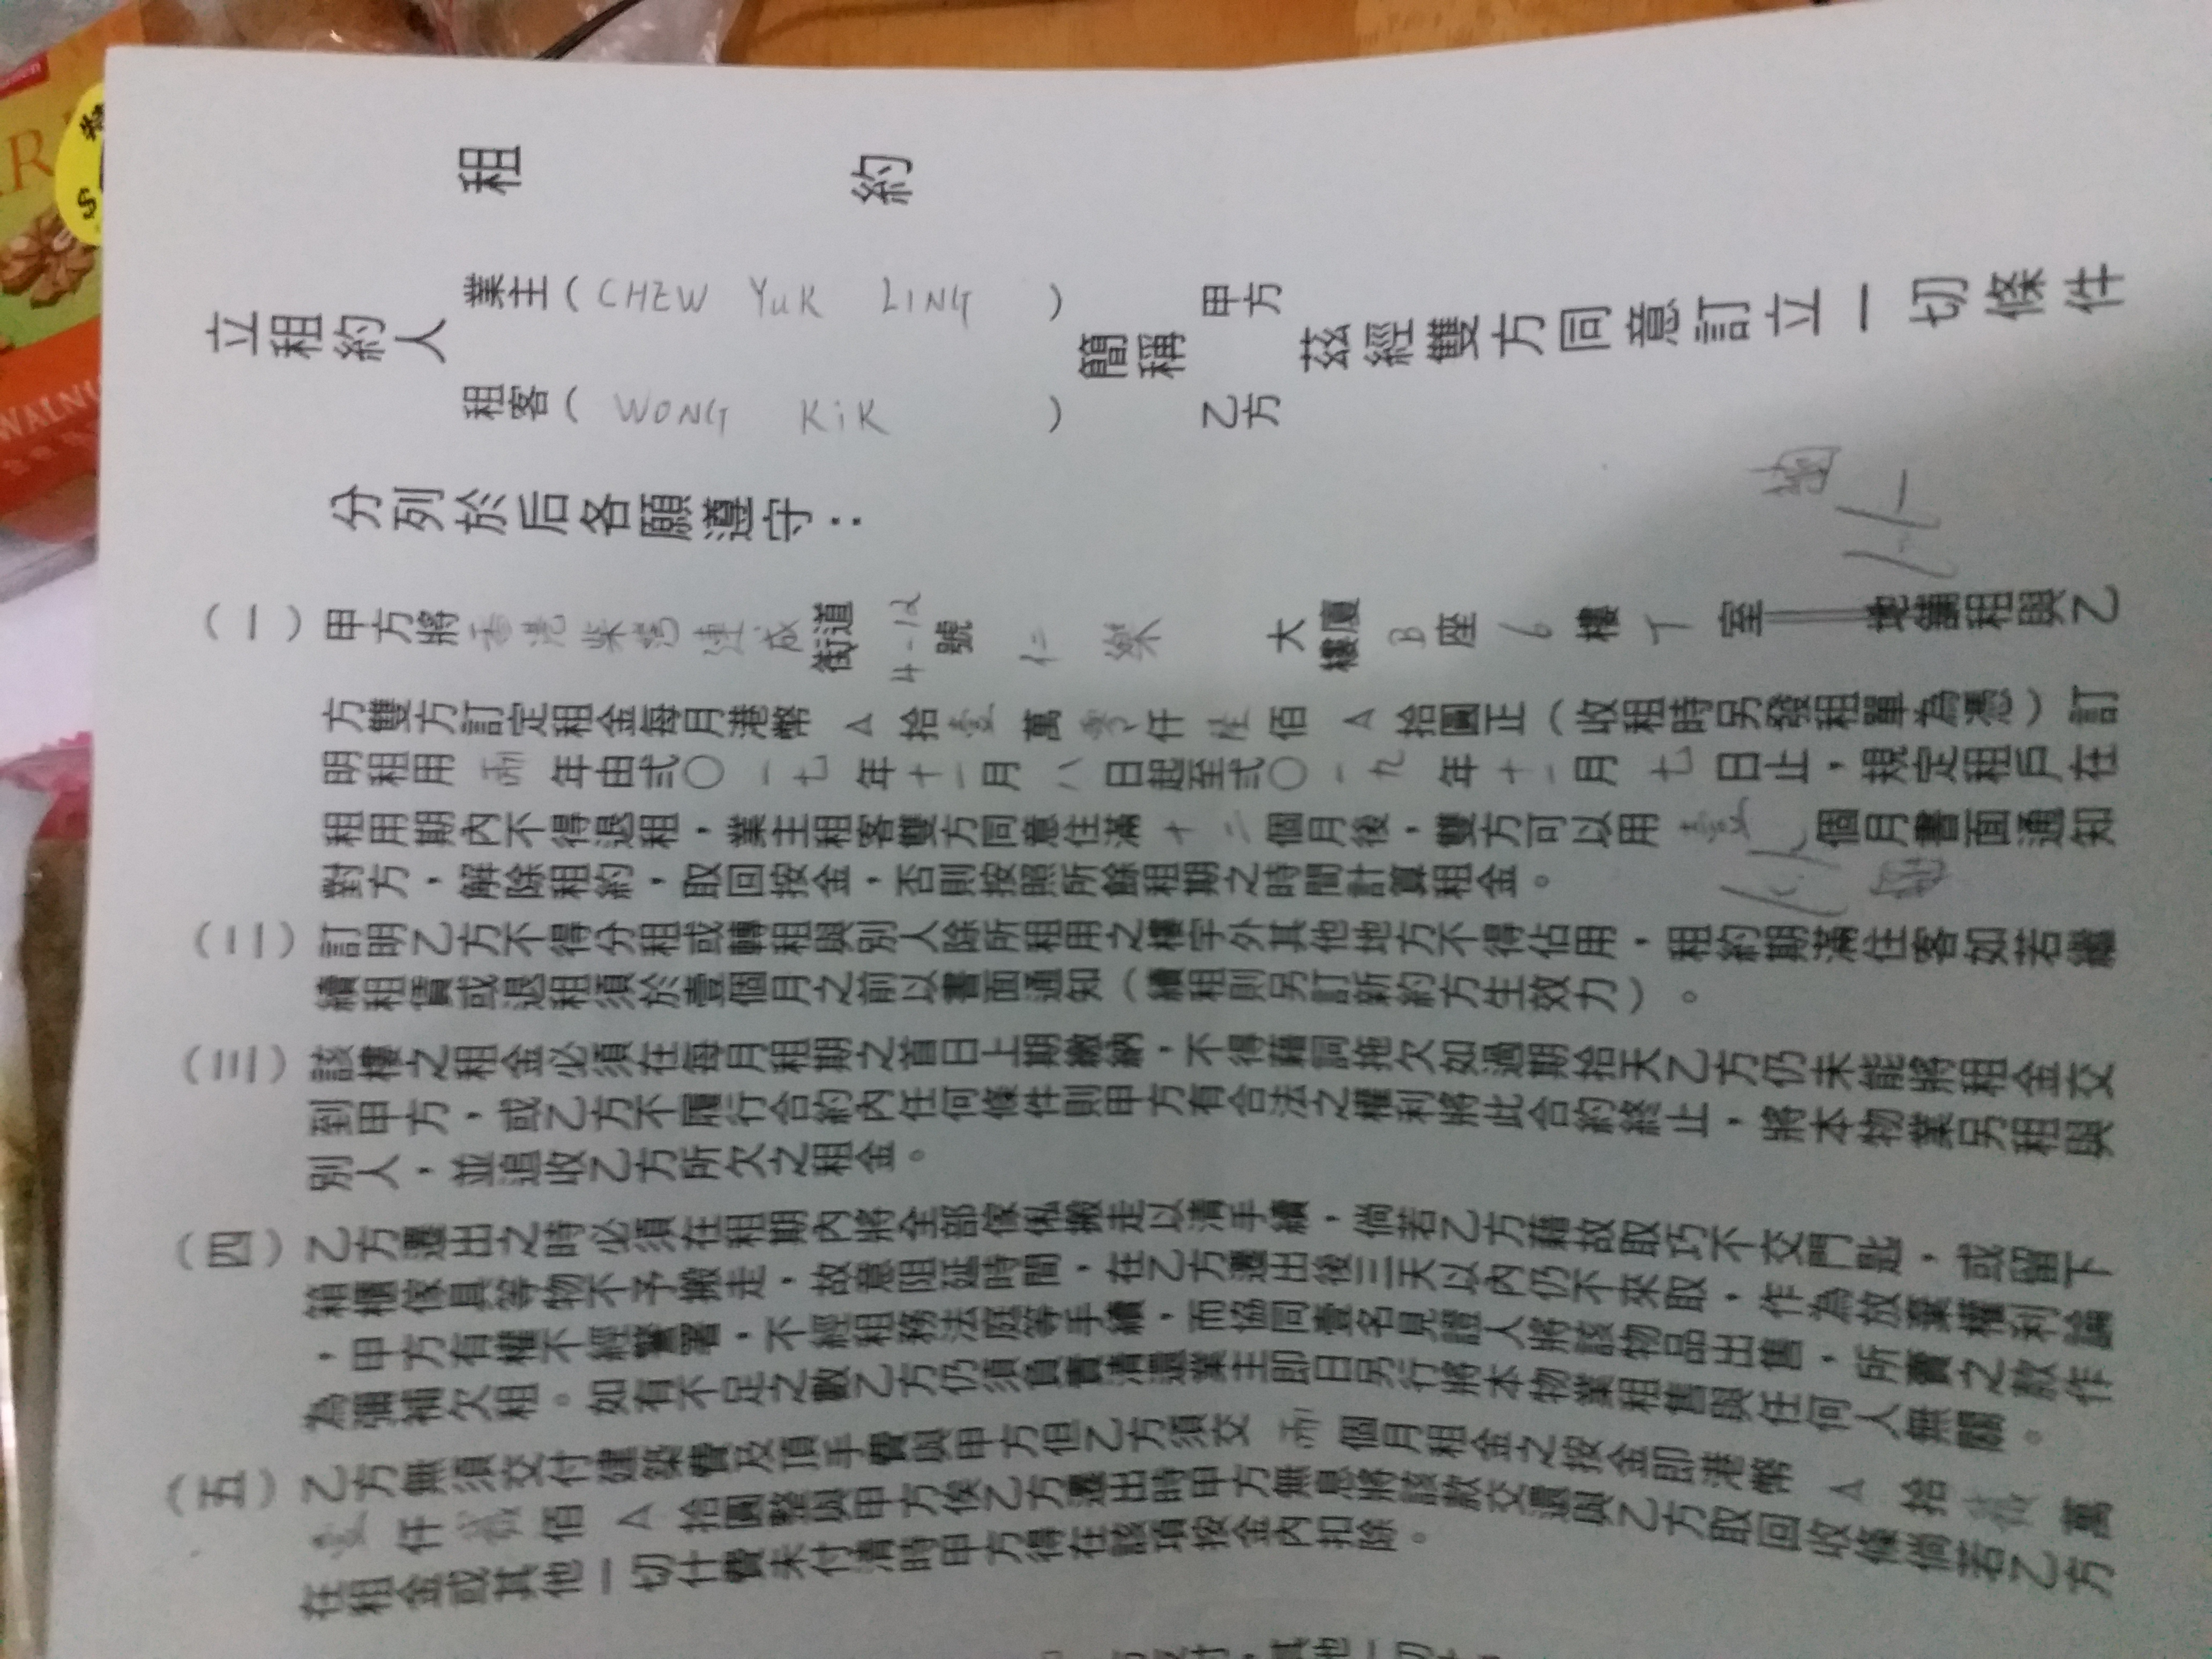 租 約
立租約人 業主(CHEW YUK LING) 簡稱 甲方 茲經雙方同意訂立一切條件
租客(WONG KIK) 乙方
分列於后各願遵守：
(一) 甲方將 香港柴灣連成 街道 4-12 號 仁樂 大廈 樓 B 座 6 樓 T 室 地舖租與乙
方雙方訂定租金每月港幣 △ 拾 壹 萬 零 仟 陸 佰 △ 拾圓正（收租時另發租單為憑）訂
明租用 兩 年由弍〇一七年十一月八日起至弍〇一九年十一月七日止，規定租戶在
租用期內不得退租，業主租客雙方同意住滿 十二 個月後，雙方可以用 壹 個月書面通知
對方，解除租約，取回按金，否則按照所餘租期之時間計算租金。
(二) 訂明乙方不得分租或轉租與別人除所租用之樓宇外其他地方不得佔用，租約期滿住客如若繼
續租賃或退租須於壹個月之前以書面通知（續租則另訂新約方生效力）。
(三) 該樓之租金必須在每月租期之首日上期繳納，不得藉詞拖欠如過期拾天乙方仍未能將租金交
到甲方，或乙方不履行合約內任何條件則甲方有合法之權利將此合約終止，將本物業另租與
別人，並追收乙方所欠之租金。
(四) 乙方遷出之時必須在租期內將全部傢俬搬走以清手續，倘若乙方藉故取巧不交門匙，或留下
箱櫃傢具等物不予搬走，故意阻延時間，在乙方遷出後三天以內仍不來取，作為放棄權利論
，甲方有權不經警署，不經租務法庭等手續，而協同壹名見證人將該物品出售，所賣之款作
為彌補欠租。如有不足之數乙方仍須負責清還業主即日另行將本物業租售與任何人無關。
(五) 乙方無須交付建築費及頂手費與甲方但乙方須交 兩 個月租金之按金即港幣 △ 拾 貳 萬
壹 仟 貳 佰 △ 拾圓整與甲方俟乙方遷出時甲方無息將該款交還與乙方取回收條倘若乙方
在租金或其他一切什費未付清時甲方得在該項按金內扣除。